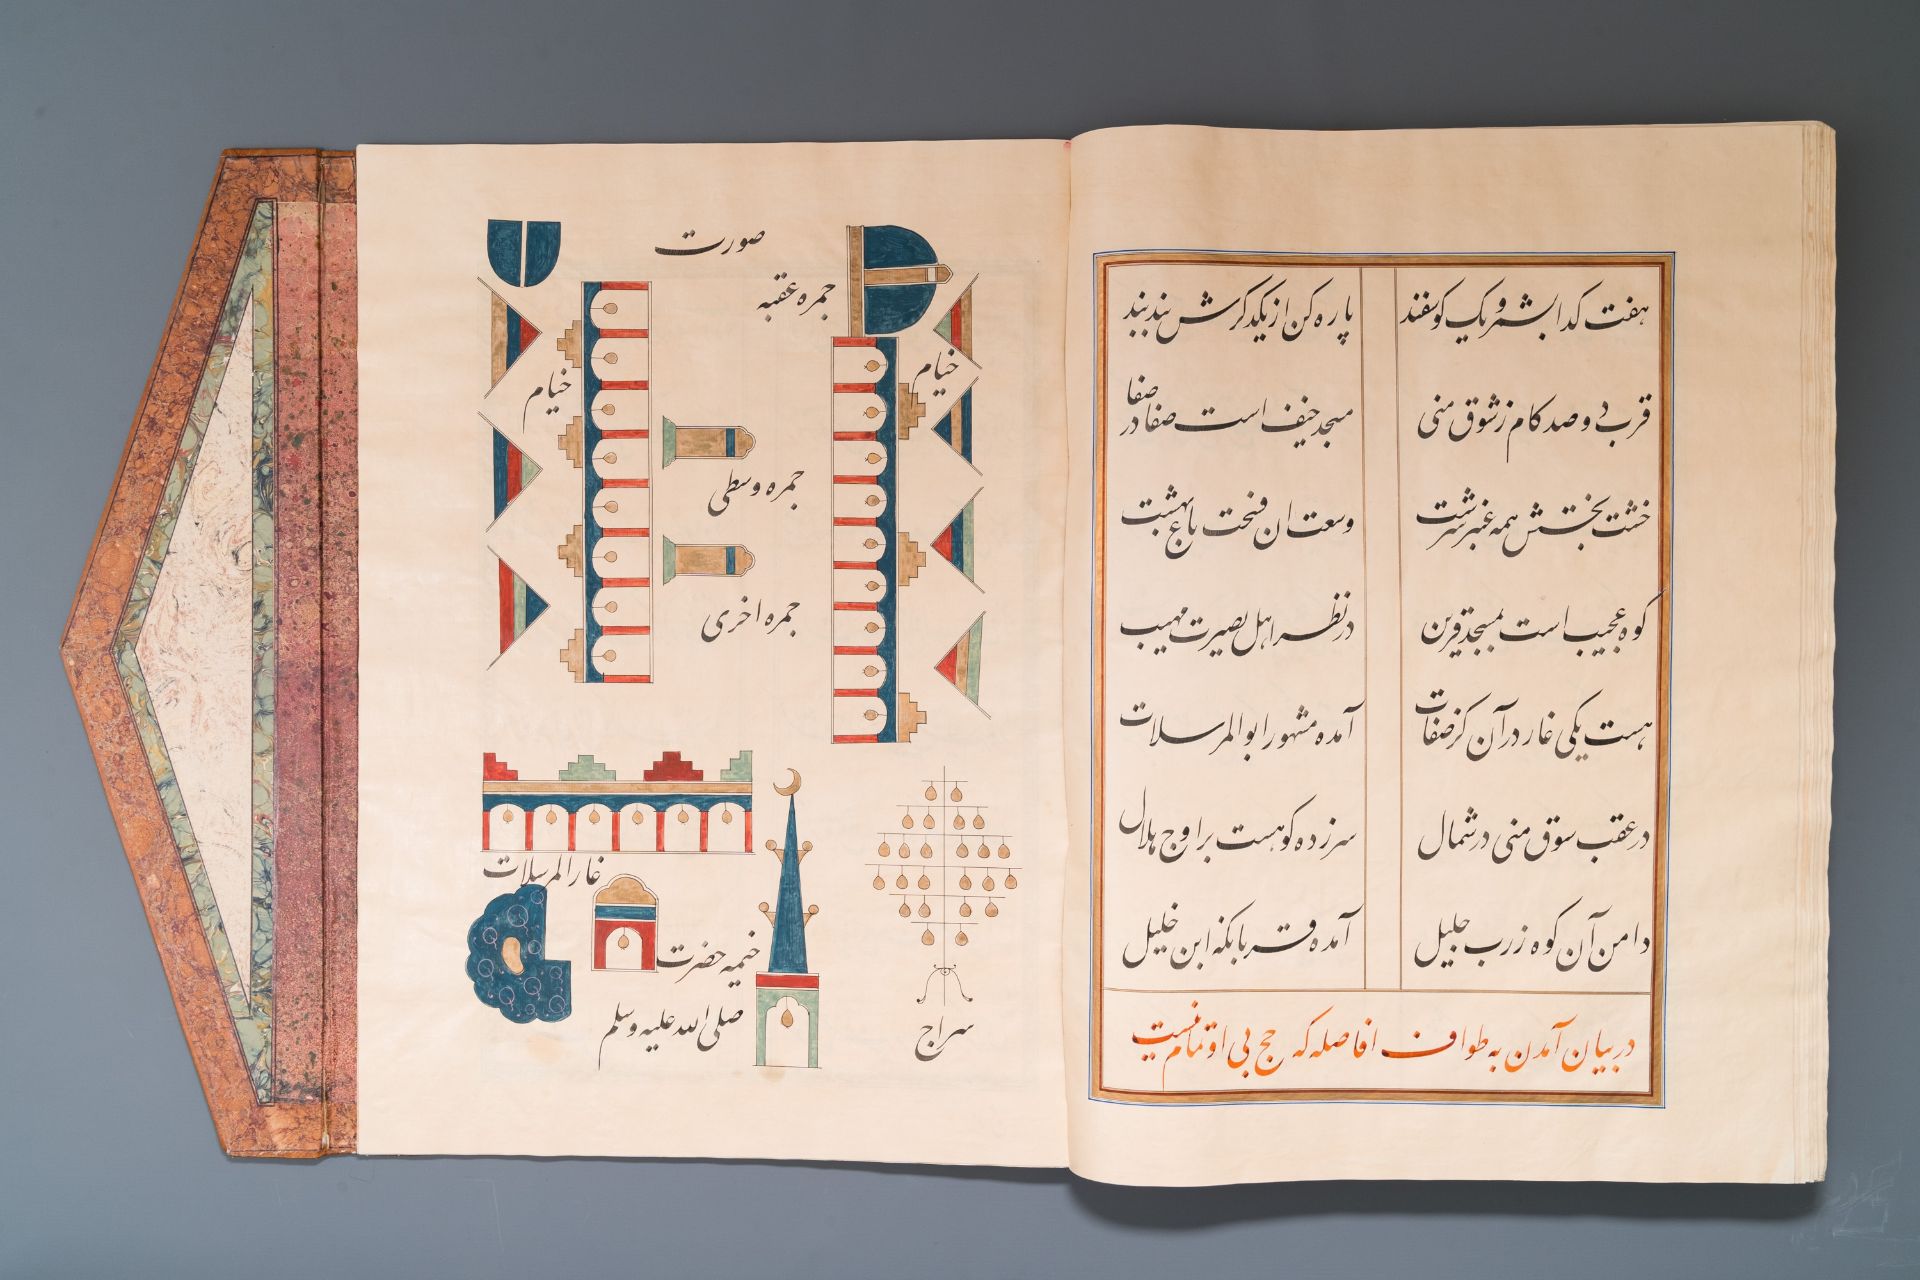 هفت کدا بشمر و یک کوسفند پاره کن از یکدکرش بند بند
قرب دو صد کام ز شوق منی مسجد خیف است صفا در صفا
خشت بختش همه عنبر سرشت وسعت ان فسحت باغ بهشت
کوه عجیب است بمسجد قرین در نظر اهل بصیرت مهیب
هست یکی غار در آن کز صفات آمده مشهور ابو المرسلات
در عقب سوق منی در شمال سر زده کوهست بر اوج هلال
دامن آن کوه ز رب جلیل آمده قربانکه ابن خلیل
در بیان آمدن به طواف افاصله که حج بی او تمام نیست
صورت
جمره عقبه
خیام
خیام
جمره وسطی
جمره اخری
غار المرسلات
خیمه حضرت
صلی الله علیه وسلم
سراج